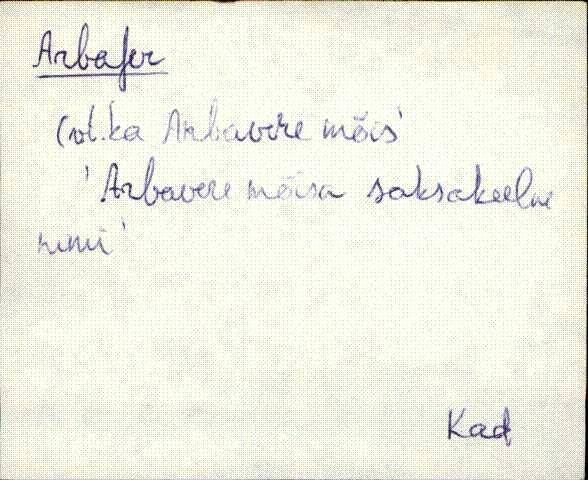 Arbafer
(vt. ka Arbavere mõis'
'Arbavere mõisa saksakeelne
nimi'
Kad